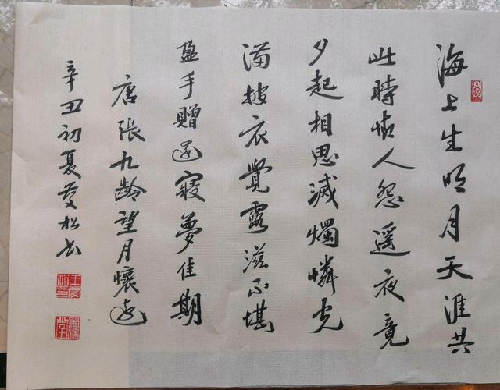 海上生明月天涯共
此時情人怨遥夜竟
夕起相思滅燭憐光
滿披衣覺露滋不堪
盈手贈還寢夢佳期
唐張九齡望月懷遠
辛丑初夏慶松书